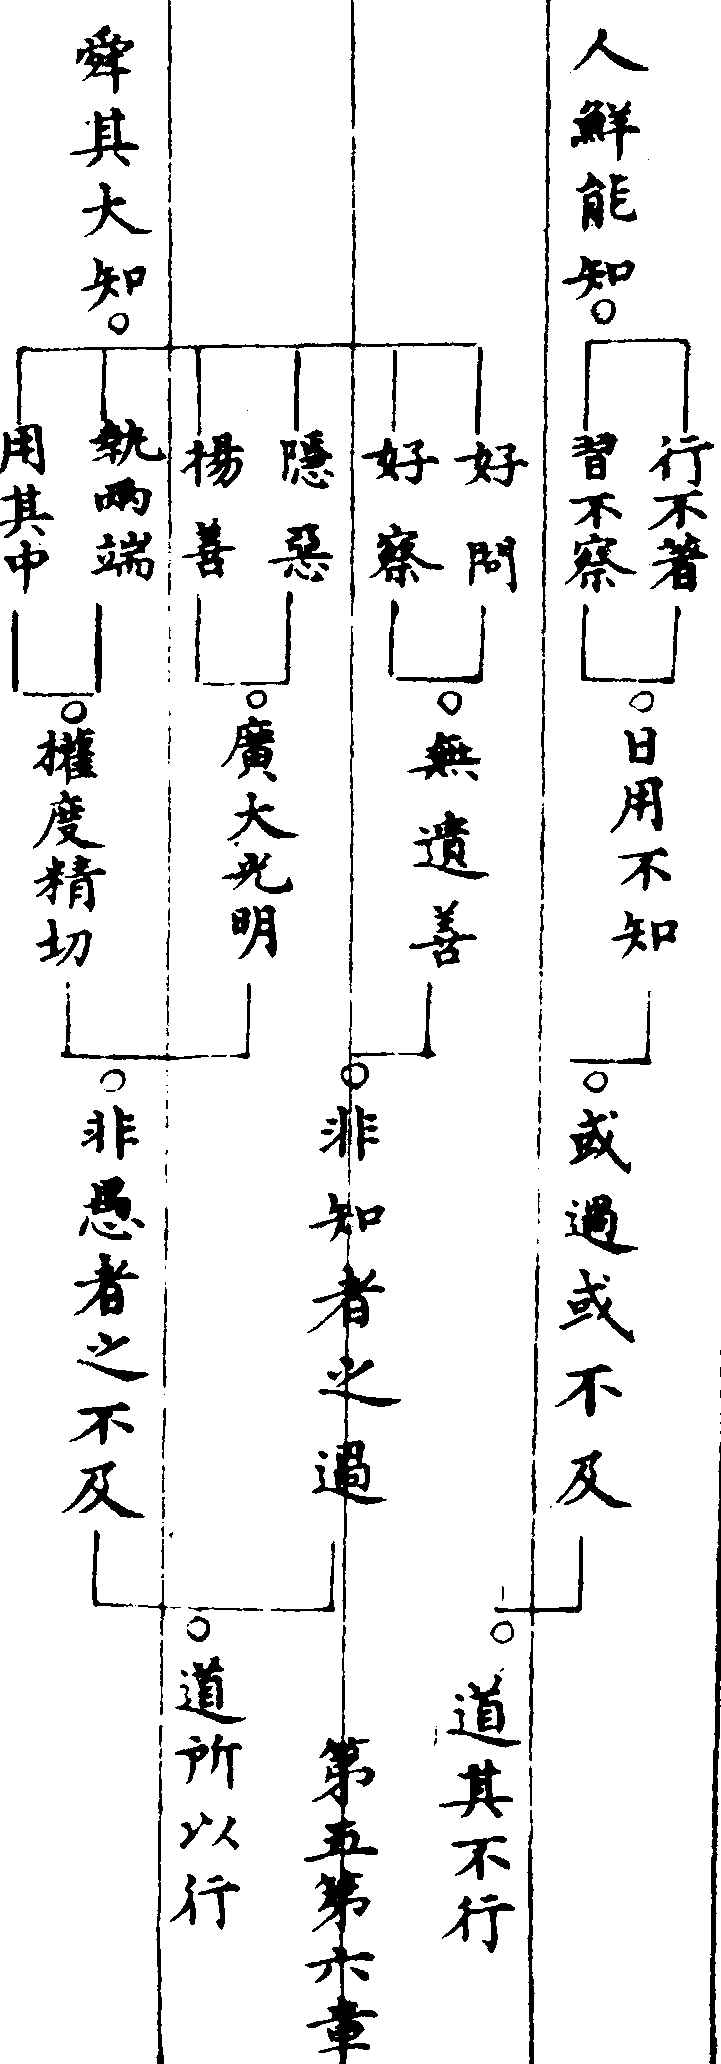 人鮮能知
行不著
習不察
日用不知
或過或不及
道其不行
舜其大知
好問
好察
隱惡
揚善
執兩端
用其中
無遺善
廣大光明
權度精切
非知者之過
非愚者之不及
道所以行
第五第六章